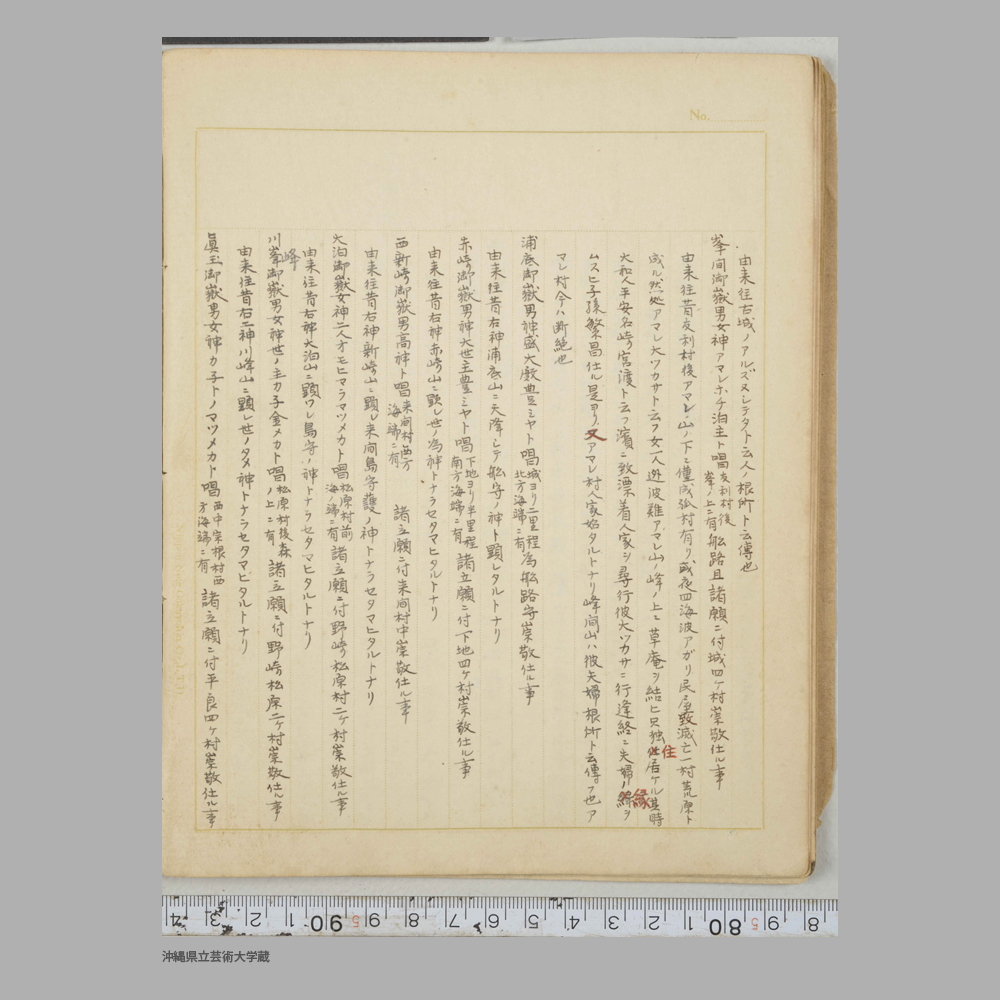 No.
由来往古城ノアルズヌシテタトム云人ノ根所ト云傳也
峯間御嶽男女神アマレホチ泊主ト唱友利村後峯ノ上ニ有船路且諸願ニ付城四ケ村崇敬仕ル事
由来往昔友利村後アマレ山ノ下ニ僅成弧村有リ或夜四海波アガリ民屋致滅亡一村荒原ト
成ル然処アマレ大ツカサト云フ女一人迯波難アマレ山ノ峰ノ上ニ草庵ヲ結ヒ只独住居ケル其時
大和人平安名崎ノ宮渡ト云フ濱ニ致漂着人家ヲ尋行彼大ツカサニ行逢終ニ夫婦ノ縁ヲ
ムスヒ子孫繁昌仕ル是ヨリ又アマレ村人家始タルトナリ峰間山ハ彼夫婦根所ト云傳フ也ア
マレ村今ハ断絶也
浦底御嶽男神盛大殿豊ミヤト唱城ヨリ二里程北方海端ニ有為船路守崇敬仕ル事
由来往昔右神浦底山ニ天降シテ船守ノ神ト顕レタルトナリ
赤崎御嶽男神大世主豊ミヤト唱下地ヨリ半里程南方海端ニ有諸立願ニ付下地四ケ村崇敬仕ル事
由来往昔右神赤崎山ニ顕レ世ノ為神トナラセタマヒタルトナリ
西新崎御嶽男高神ト唱来間村西方海端ニ有 諸立願ニ付来間村中崇敬仕ル事
由来往昔右神新崎山ニ顕レ来間島守護ノ神トナラセタマヒタルトナリ
大泊御嶽女神二人オモヒマラマツメカト唱松原村前海ノ端ニ有諸立願ニ付野崎松原村二ケ村崇敬仕ル事
由来往昔右神大泊ニ顕ワレ島守ノ神トナラセタマヒタルトナリ
川峯峰御嶽男女神世ノ主カ子金メカト唱松原村後森ノ上ニ有諸立願ニ付野崎松原二ケ村崇敬仕ル事
由来往昔右二神川峰山ニ顕レ世ノタメ神トナラセタマヒタルトナリ
眞玉御嶽男女神カ子トノマツメカト唱西中宗根村西方海端ニ有諸立願ニ付平良四ケ村崇敬仕ル事
4 3 2 1 90 9 5 8 7 6 5 4 3 2 1 80 9 5 8
沖縄県立芸術大学蔵